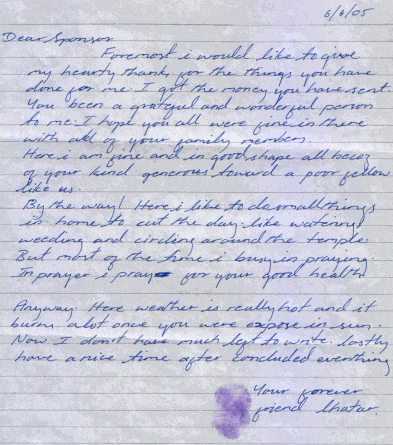 6/6/05
Dear Sponsor
Foremost i would like to give
my hearty thank, for the things you have
done for me. I got the money you have sent.
You been a grateful and wonderful person
to me. I hope you all were fine in there
with all of your family members.
Here i am fine and in good shape all becoz
of your kind generous toward a poor fellow
like us.
By the way! Here i like to do small things
in home to cut the day like watering
weeding and circling around the temple
But most of the time i busy in praying.
In prayer i pray for your good health.
Anyway! Here weather is really hot and it
burns alot once you were expose in sun.
Now I don't have much left to write. lastly
have a nice time after concluded everything
Your forever
friend lhatar.